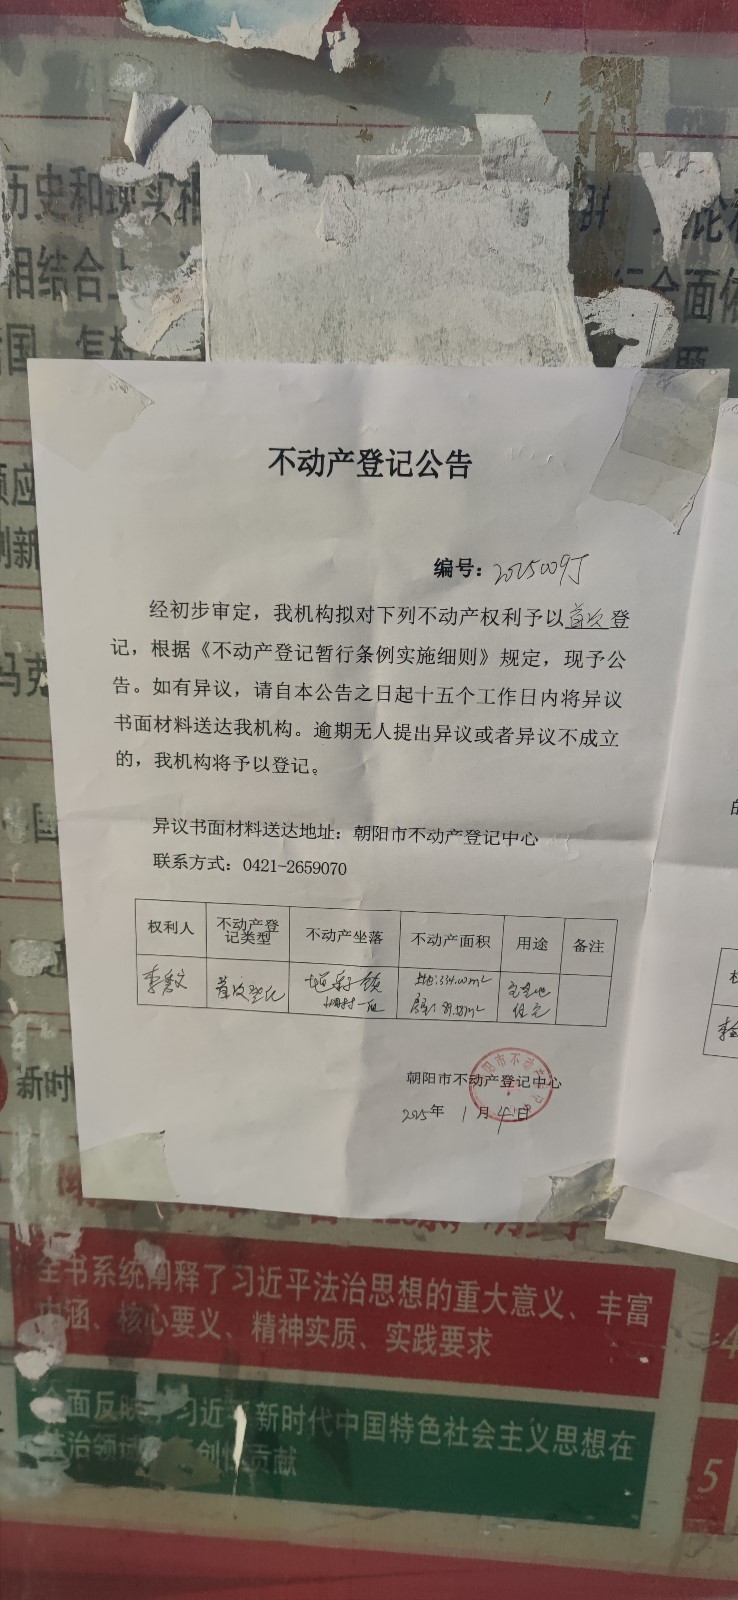 历史和现实相
相结合上
全面依
不动产登记公告
编号：
经初步审定，我机构拟对下列不动产权利予以首次登
记，根据《不动产登记暂行条例实施细则》规定，现予公
告。如有异议，请自本公告之日起十五个工作日内将异议
书面材料送达我机构。逾期无人提出异议或者异议不成立
的，我机构将予以登记。
异议书面材料送达地址：朝阳市不动产登记中心
联系方式：0421-2659070
权利人 不动产登记类型 不动产坐落 不动产面积 用途 备注
首次登记 土地:334.00m² 宅基地
住宅
朝阳市不动产登记中心
2025年 1月 4日
新时
全书系统阐释了习近平法治思想的重大意义、丰富
内涵、核心要义、精神实质、实践要求
全面反映 习近 新时代中国特色社会主义思想在
法治领域 创性贡献
4
5